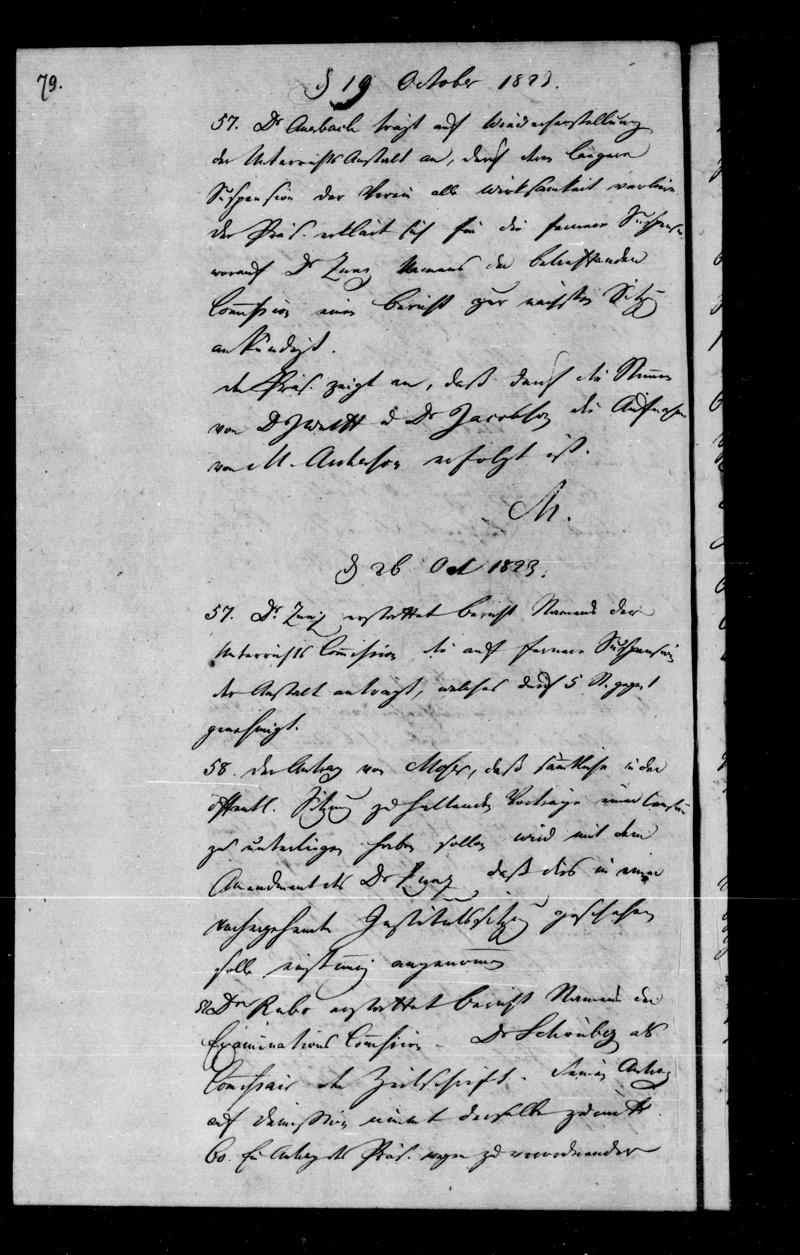 79.
d 19 October 1823.
57. Dr Auerbach trägt auf Wiederherstellung
der Unterrichts Anstalt an, durch deren längere
Suspension der Verein alle Wirksamkeit verliere.
Der Präs. erklärt sich für die fernere Suspension
worauf Dr Zunz Namens der betreffenden
Commission einen Bericht zur nächsten Sitzg
ankündigt.
der Präs. zeigt an, daß durch die Stimmen
von u Dr Jacobson die Aufnahme
von M. erfolgt ist.
M.
d 26 Oct 1823.
57. Dr Zunz erstattet Bericht Namens der
Unterrichts Commission die auf fernere Suspension
der Anstalt anträgt, welches durch 5 St. gegen 1
genehmigt.
58. der Antrag von Moser, daß sämtliche in der
öffentl. Sitzung zu haltenden Vorträge einer Censur
zu unterliegen haben sollen wird mit dem
Amendment des Dr Zunz daß dies in einer
vorhergehenden Institutssitzung geschehen
solle einstimmig angenommen
Dr Rubo erstattet Bericht Namens der
Examinations Commission. Dr Schönberg als
Commissair der Zeitschrift. Seinen Antrag
auf Dimission nimmt derselbe zurück.
60. Ein Antrag des Präs. wegen zu verordnender